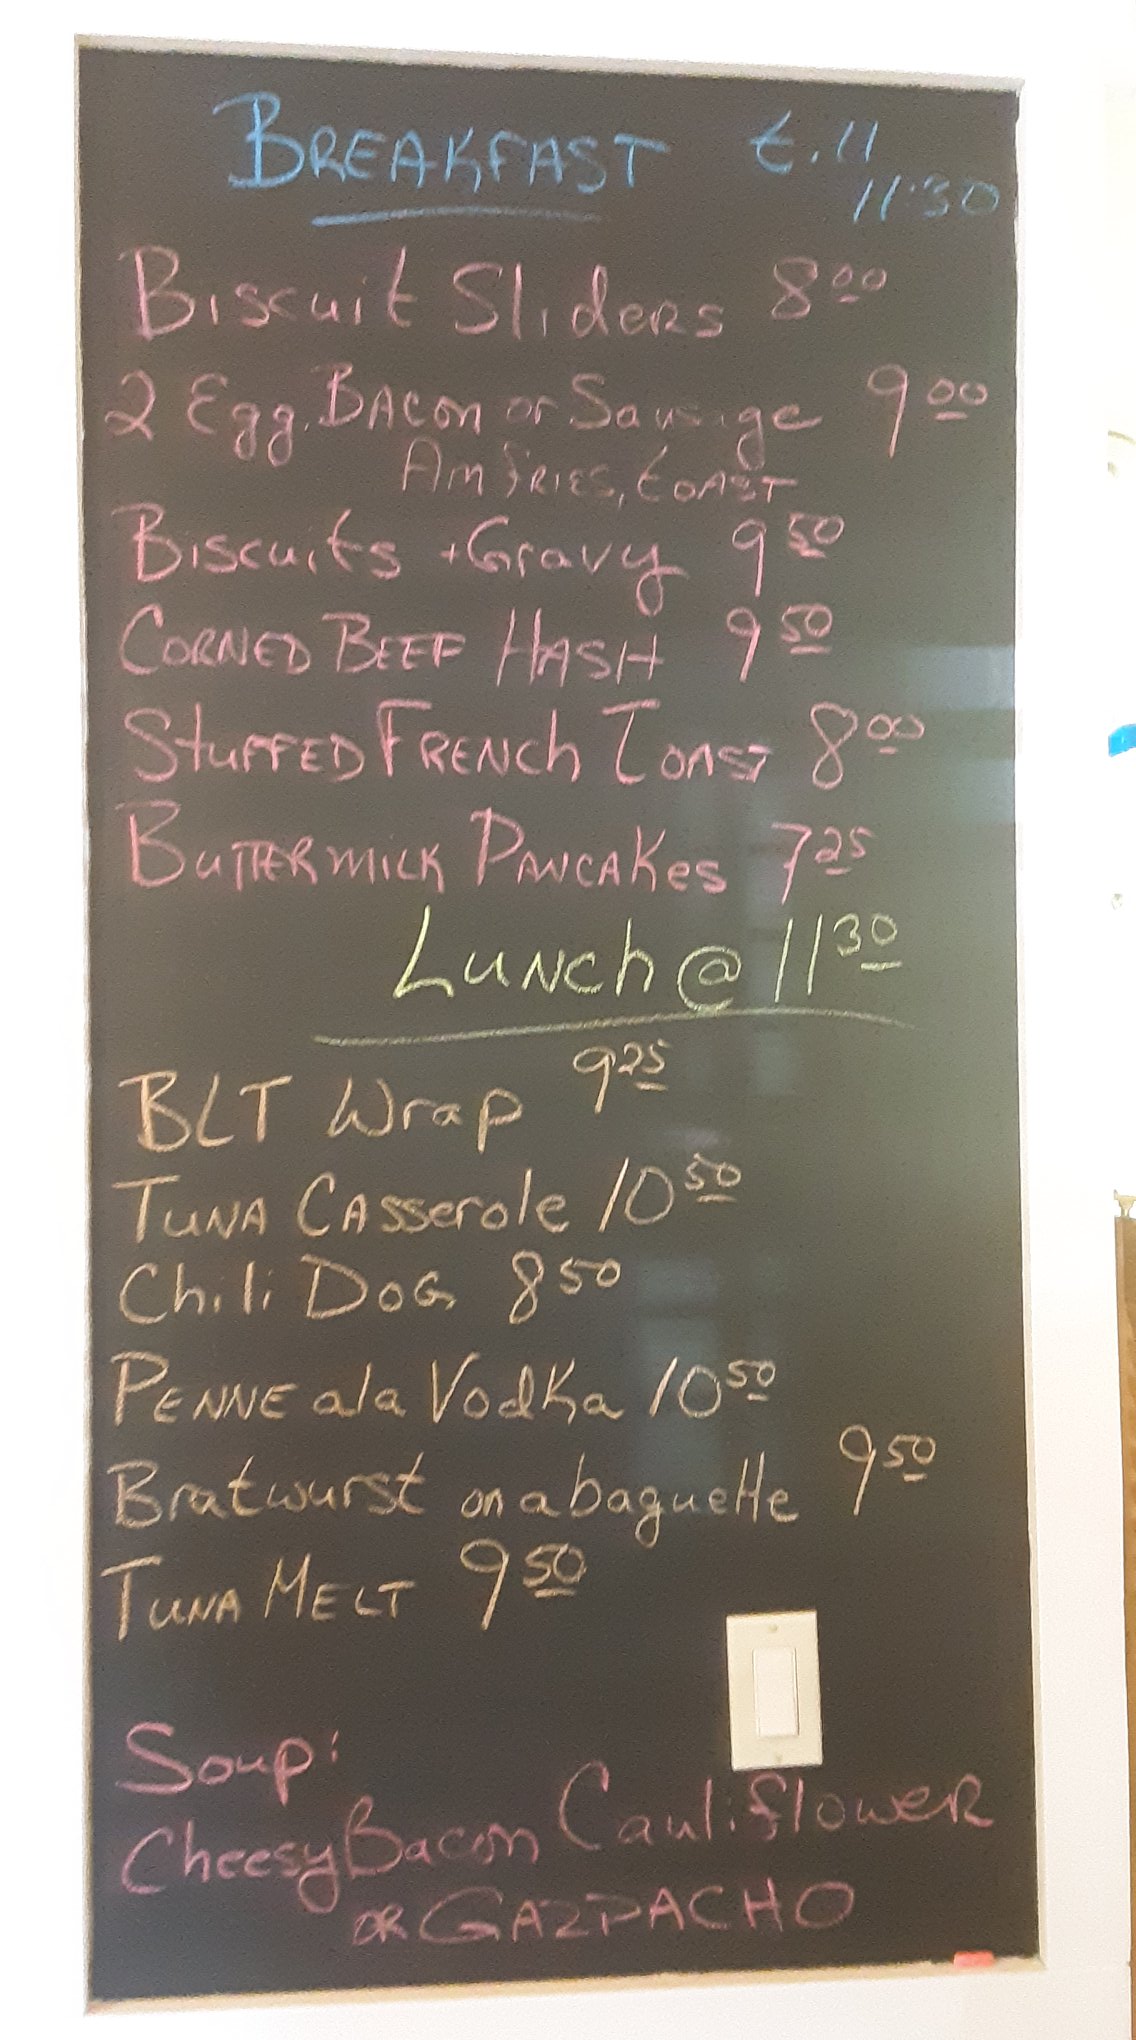 BREAKFAST till
11:30
Biscuit Sliders 8 00
2 Egg, BACON or Sausage 9 00
AM FRIES, tOAST
Biscuits + Gravy 9 50
CORNED BEEF HASH 9 50
StuFFED FRENCh TOAST 8 00
BuTTERMILK PANCAKes 7 25
LuNCh @ 11 30
BLT Wrap 9 25
TUNA CAsserole 10 50
Chili DOG 8 50
PENNE ala VodKa 10 50
Bratwurst on a baguette 9 50
TUNA MELT 9 50
Soup:
Cheesy Bacon CauliflowER
OR GAZPACHO